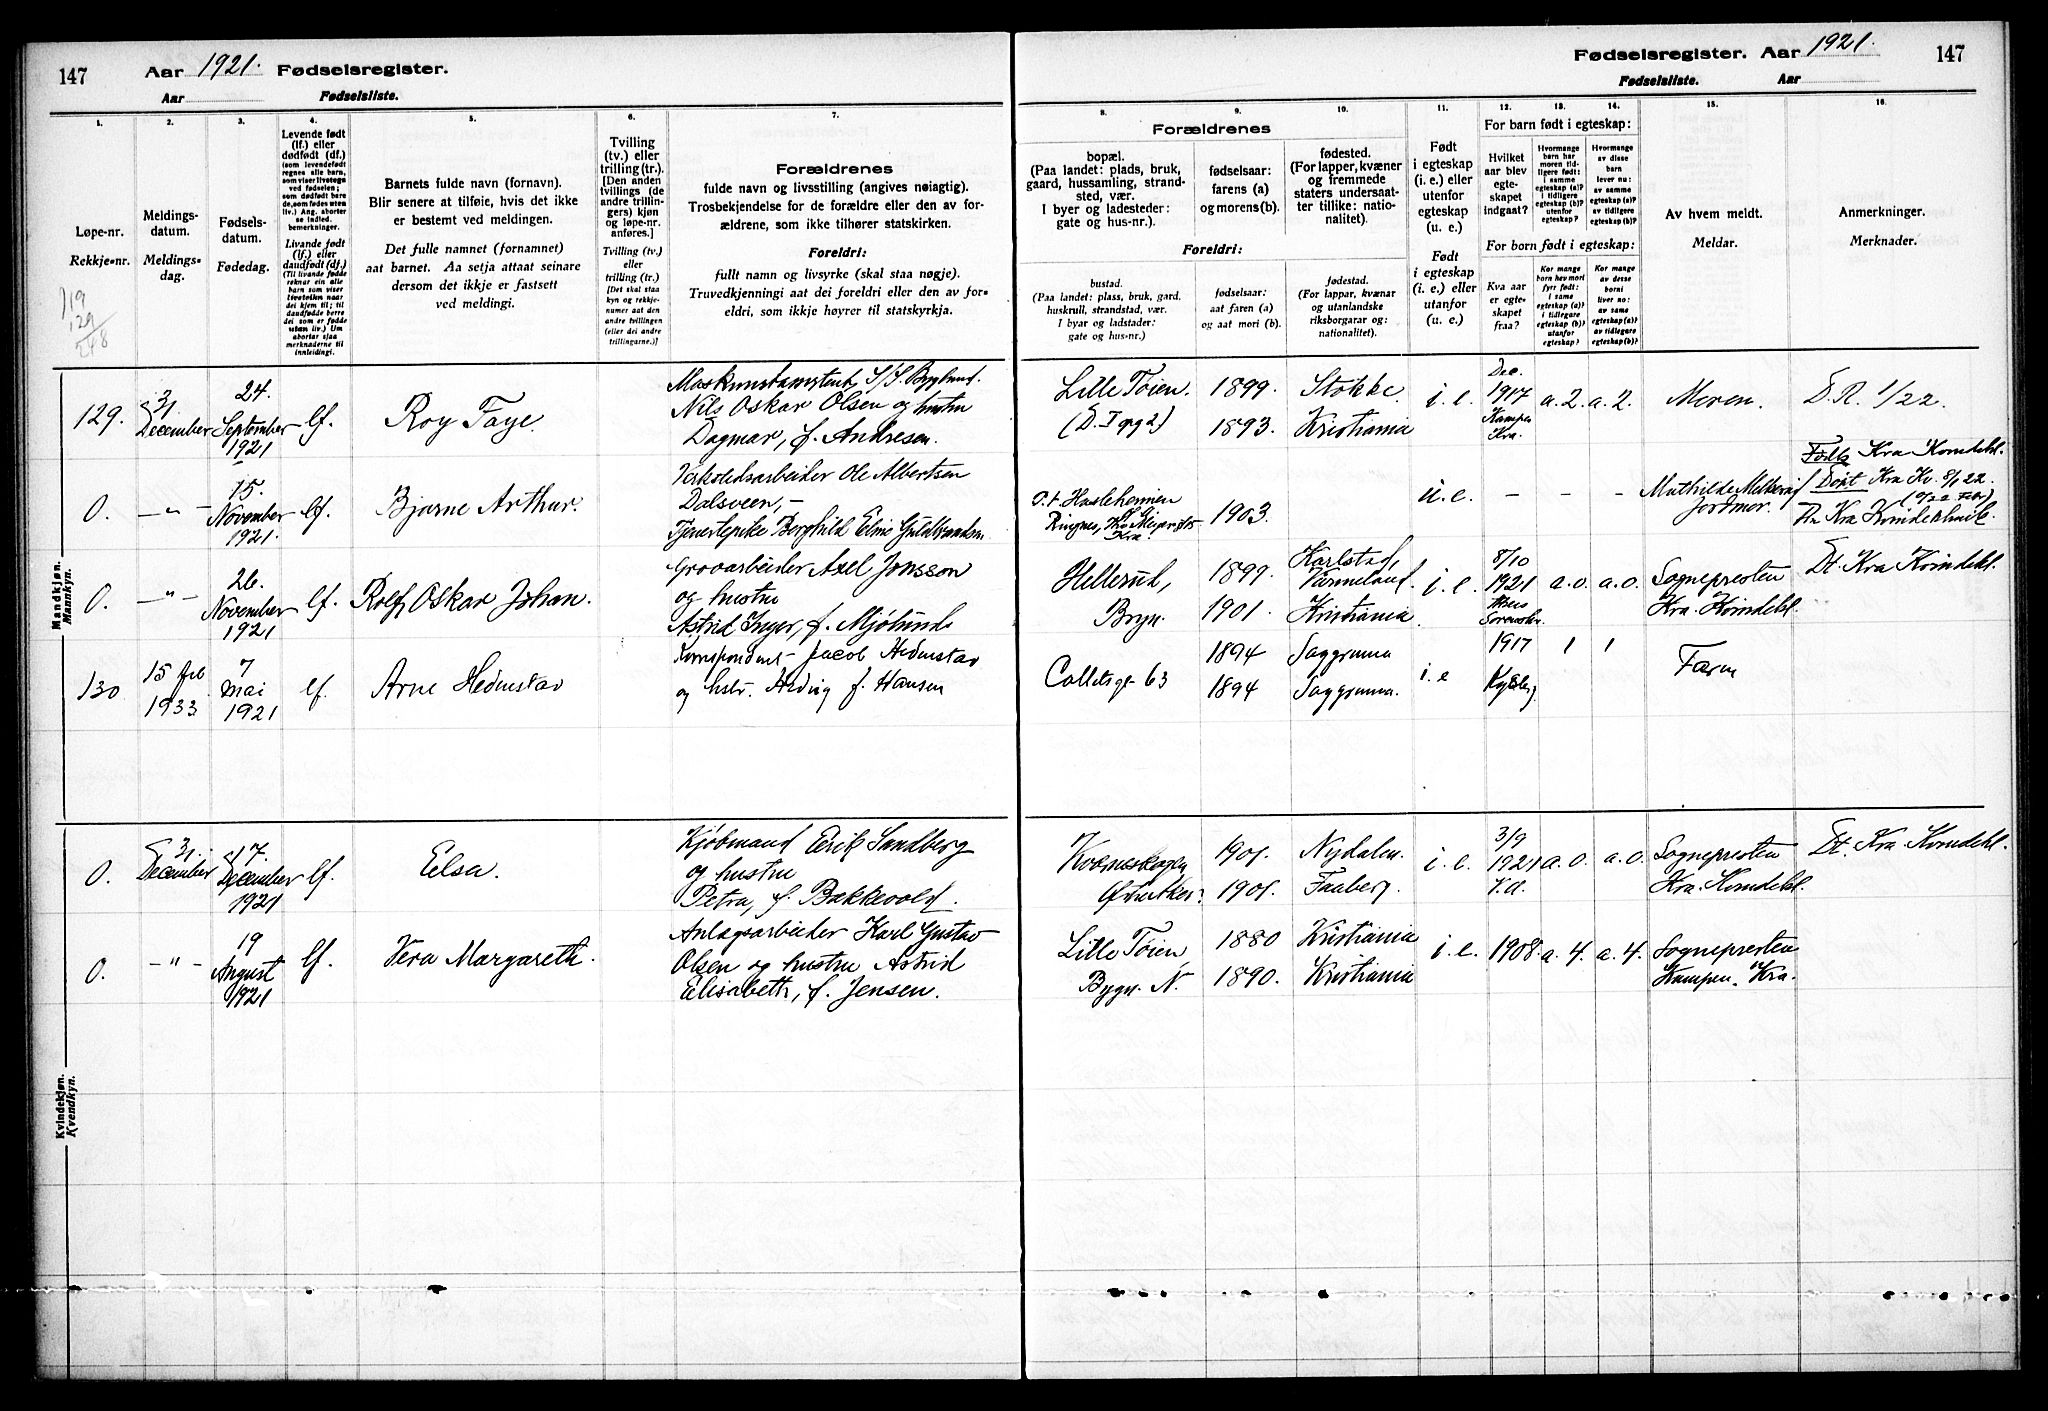 147
Aar 1921. Fødselsregister.
Aar Fødselsliste.
Fødselsregister. Aar 1921.
Fødselsliste. Aar
147
1. 2. 3. 4. 5. 6. 7.
8. 9. 10. 11. 12. 13. 14. 15. 16.
Løpe-nr.
Rekkje-nr.
Meldings-
datum.
Meldings-
dag.
Fødsels-
datum.
Fødedag.
Levende født
(lf.) eller
dødfødt (df.)
(som levendefødt
regnes alle barn,
som viser livstegn
ved fødselen;
som dødfødt barn
de, som fødes uten
liv.) Ang. aborter
se indled.
bemerkninger.
Livande født
(lf.) eller
daudfødt (df.)
(Til livande fødde
reknar ein alle
barn som viser
livsteikn naar
dei kjem til; til
daudfødde berre
dei som er fødde
utan liv.) Um
abortar sjaa
merknaderne til
innleidingi.
Barnets fulde navn (fornavn).
Blir senere at tilføie, hvis det ikke
er bestemt ved meldingen.
Det fulle namnet (fornamnet)
aat barnet. Aa setja attaat seinare
dersom det ikkje er fastsett
ved meldingi.
Tvilling
(tv.) eller
trilling (tr.).
[Den anden
tvillings (de
andre trillin-
gers) kjøn
og løpe-nr.
anføres.]
Tvilling (tv.)
eller
trilling (tr.)
[Det skal staa
kyn og rekkje-
numer aat den
andre tvillingen
(eller dei andre
trillingarne.)]
Forældrenes
fulde navn og livsstilling (angives nøiagtig).
Trosbekjendelse for de forældre eller den av for-
ældrene, som ikke tilhører statskirken.
Foreldri:
fullt namn og livsyrke (skal staa nøgje).
Truvedkjenningi aat dei foreldri eller den av for-
eldri, som ikkje høyrer til statskyrkja.
Forældrenes
bopæl.
(Paa landet: plads, bruk,
gaard, hussamling, strand-
sted, vær.
I byer og ladesteder:
gate og hus-nr.).
fødselsaar:
farens (a)
og morens (b).
fødested.
(For lapper, kvæner
og fremmede
staters undersaat-
ter tillike: natio-
nalitet).
Foreldri:
bustad.
(Paa landet: plass, bruk, gard,
huskrull, strandstad, vær.
I byar og ladstader:
gate og hus-nr.)
fødselsaar:
aat faren (a)
og aat mori (b).
fødestad.
(For lappar, kvænar
og utanlandske
riksborgarar og:
nationalitet).
Født
i egteskap
(i. e.) eller
utenfor
egteskap
(u. e.)
Født
i egteskap
(i. e.) eller
utanfor
(u. e.).
For barn født i egteskap:
Hvilket
aar blev
egte-
skapet
indgaat?
Hvormange
barn har
moren tid-
ligere født:
i samme
egteskap (a)?
i tidligere
egteskap (b)?
utenfor
egteskap?
Hvormange
av disse
barn
lever nu:
av samme
egteskap (a)?
av tidligere
egteskap (b)?
For born født i egteskap:
Kva aar
er egte-
skapet
fraa?
Kor mange
born hev mori
fyrr født:
i same
egteskap (a)?
i tidlegare
egteskap (b)?
utanfor
egteskap?
Kor mange
av desse
borni
liver no:
av same
egteskap (a)?
av tidlegare
egteskap (b)?
Av hvem meldt.
Meldar.
Anmerkninger.
Merknader.
119
129
248
Mandkjøn.
Mannkyn.
129. 31 December 24. September 1921 lf. Roy Faye.
Nils Oskar Olsen og hustru
Dagmar, f. Andresen.
Lille Tøien. 1899. Stokke.
1893. Kristiania
i. e. Dec. 1917 Kampen Kra. a. 2. a. 2. Moren. D. R. 1/22.
0. -"- 15. November 1921. lf. Bjarne Arthur.
Verkstedsarbeider Ole Albertsen
Dalsveen, -
Ringnes, Kra. 1903.
u. e. - - - Mathilde
Jordmor.
Døbt Kra
0. -"- 26. November 1921 lf. Rolf Oskar Johan.
Grovarbeider Axel Jonsson
og hustru
Astrid Inger, f. Mjølunds
Hellerud, Bryn. 1899. Karlstad, Värmeland
1901. Kristiania.
i. e. 8/10 1921 a. 0. a. 0. Sognepresten
130 15 feb 1933 7 mai 1921 lf. Arne Hedmstav
Korrespondent Jacob Hedmstav
og hstr. f. Hansen
Colletsgt 63 1894
1894
i. e 1917 1 1 Faren
Kvindekjøn.
Kvendkyn.
0. 31. December 17. December 1921 lf. Elsa.
Kjøbmand Erik Sandberg
og hustru
Petra, f. Bakkevold.
1901. Nydalen.
1901. Faaberg.
i. e. 3/9 1921 a. 0. a. 0. Sognepresten
0. -"- 19 August 1921 lf. Vera Margareth.
Anlægsarbeider Karl Gustav
Olsen og hustru Astrid
Elisabeth, f. Jensen.
Lille Tøien 1880 Kristiania
1890. Kristiania
i. e. 1908. a. 4. a. 4. Sognepresten
Kampen. Kra.